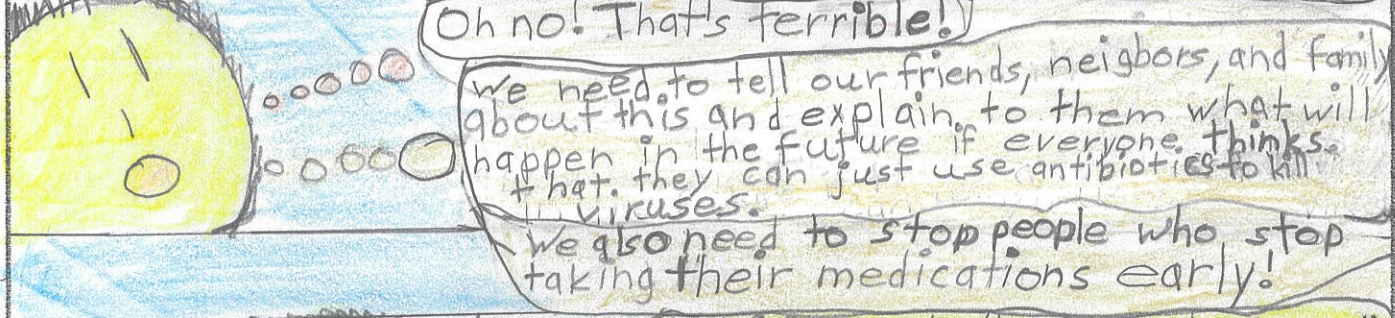 Oh no! That's terrible!
We need to tell our friends, neigbors, and family
about this and explain to them what will
happen in the future if everyone thinks
that they can just use antibiotics to kill
viruses.
We also need to stop people who stop
taking their medications early!